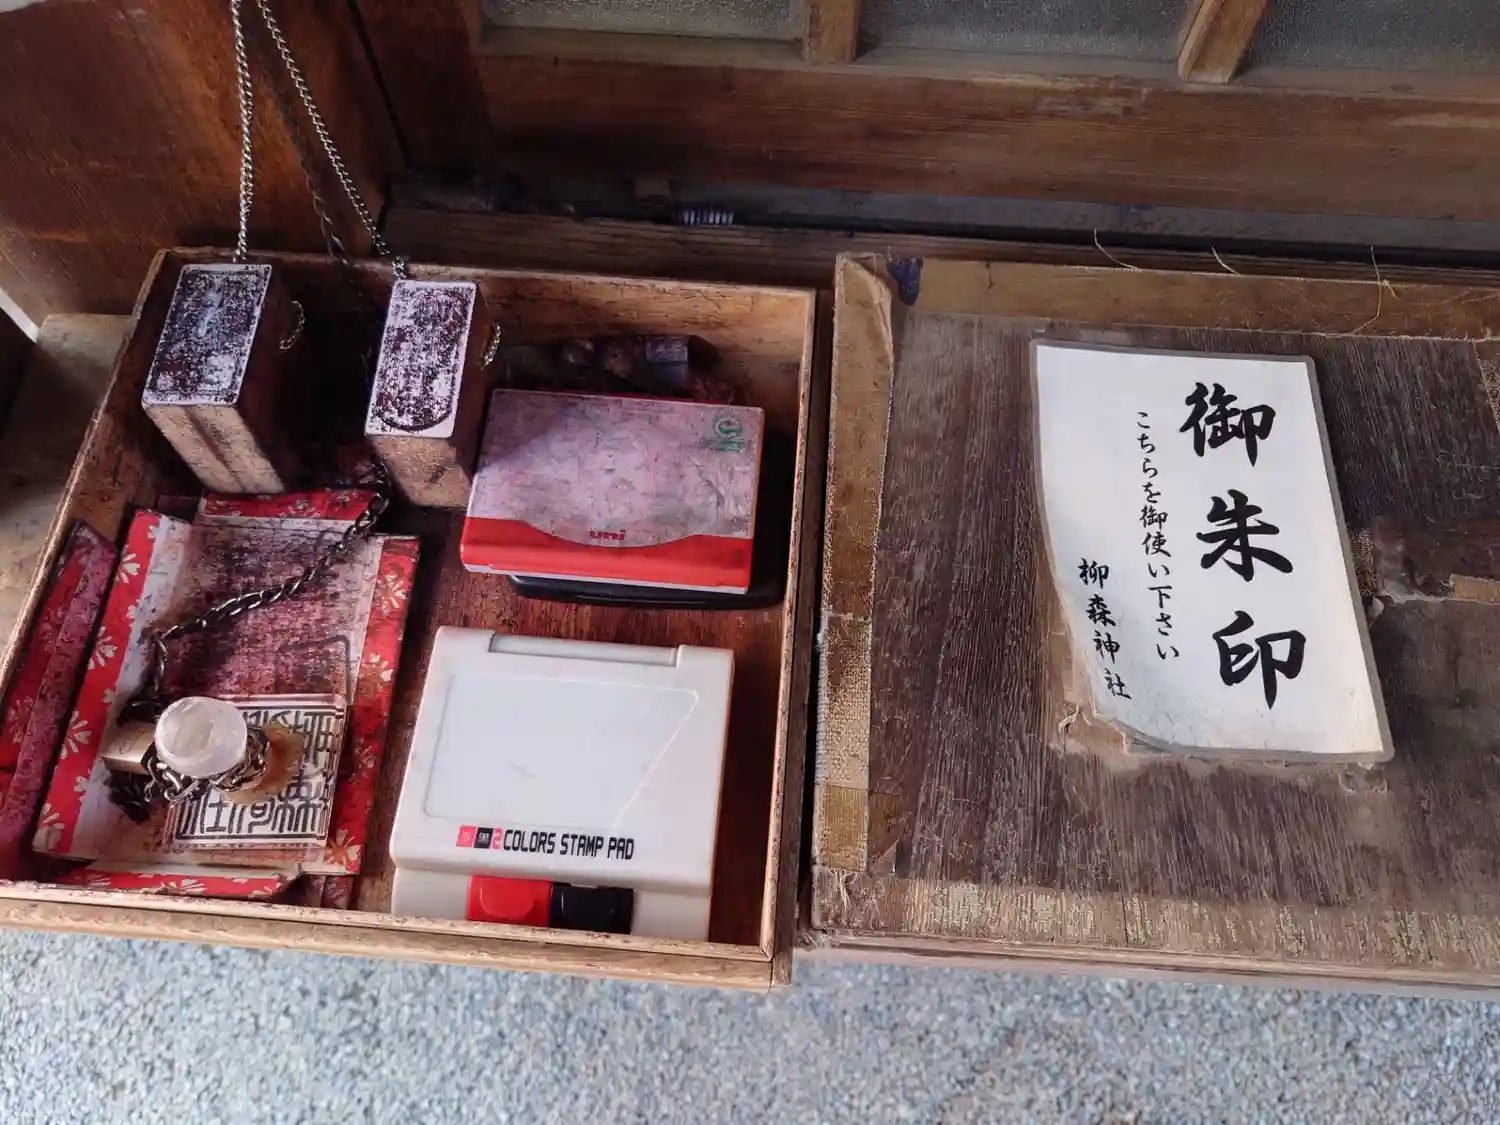 御朱印
こちらを御使い下さい
柳森神社
uni
2 COLORS STAMP PAD